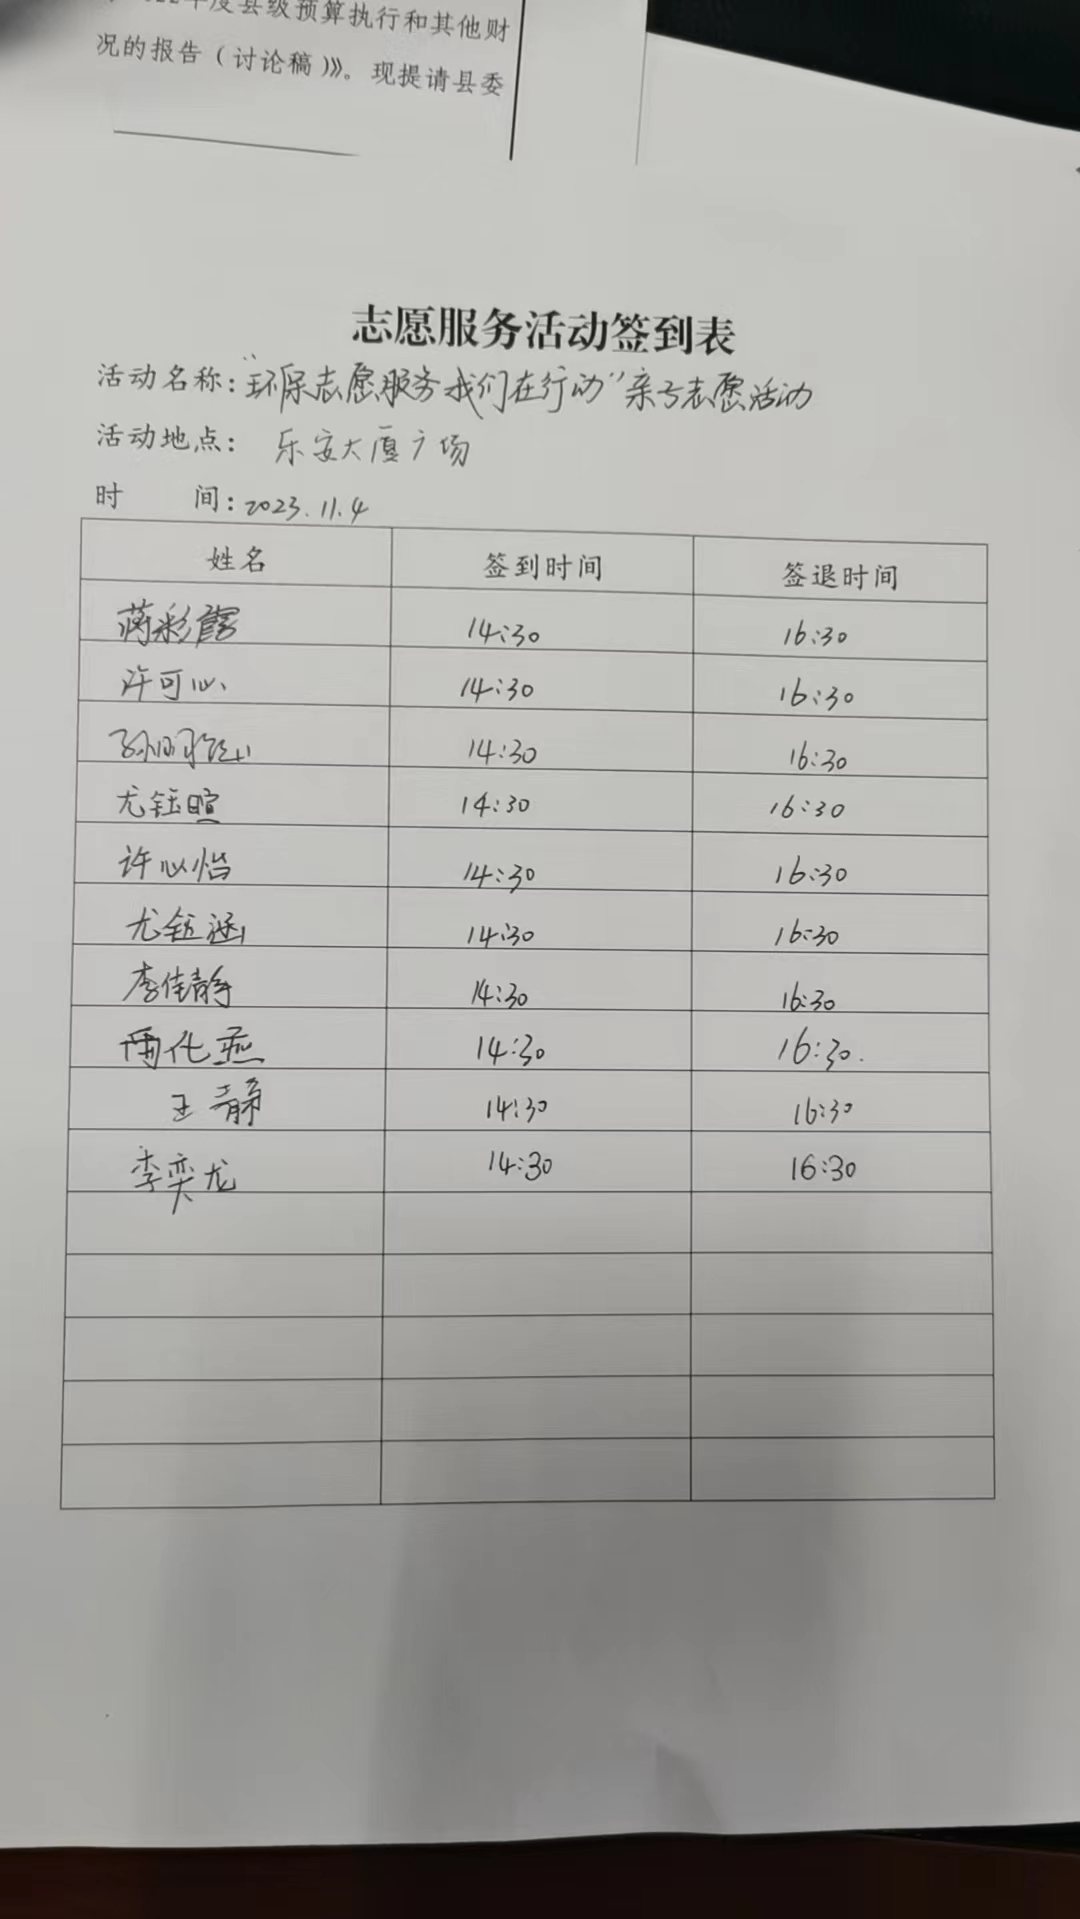 年度县级预算执行和其他财
况的报告（讨论稿）》。现提请县委
志愿服务活动签到表
活动名称："环保志愿服务我们在行动"亲子志愿活动
活动地点： 乐安大厦广场
时 间：2023.11.4
姓名 签到时间 签退时间
蒋彩霞 14:30 16:30
许可心 14:30 16:30
14:30 16:30
尤钰暄 14:30 16:30
许心怡 14:30 16:30
尤钰涵 14:30 16:30
李佳静 14:30 16:30
化燕 14:30 16:30.
王静 14:30 16:30
李奕龙 14:30 16:30